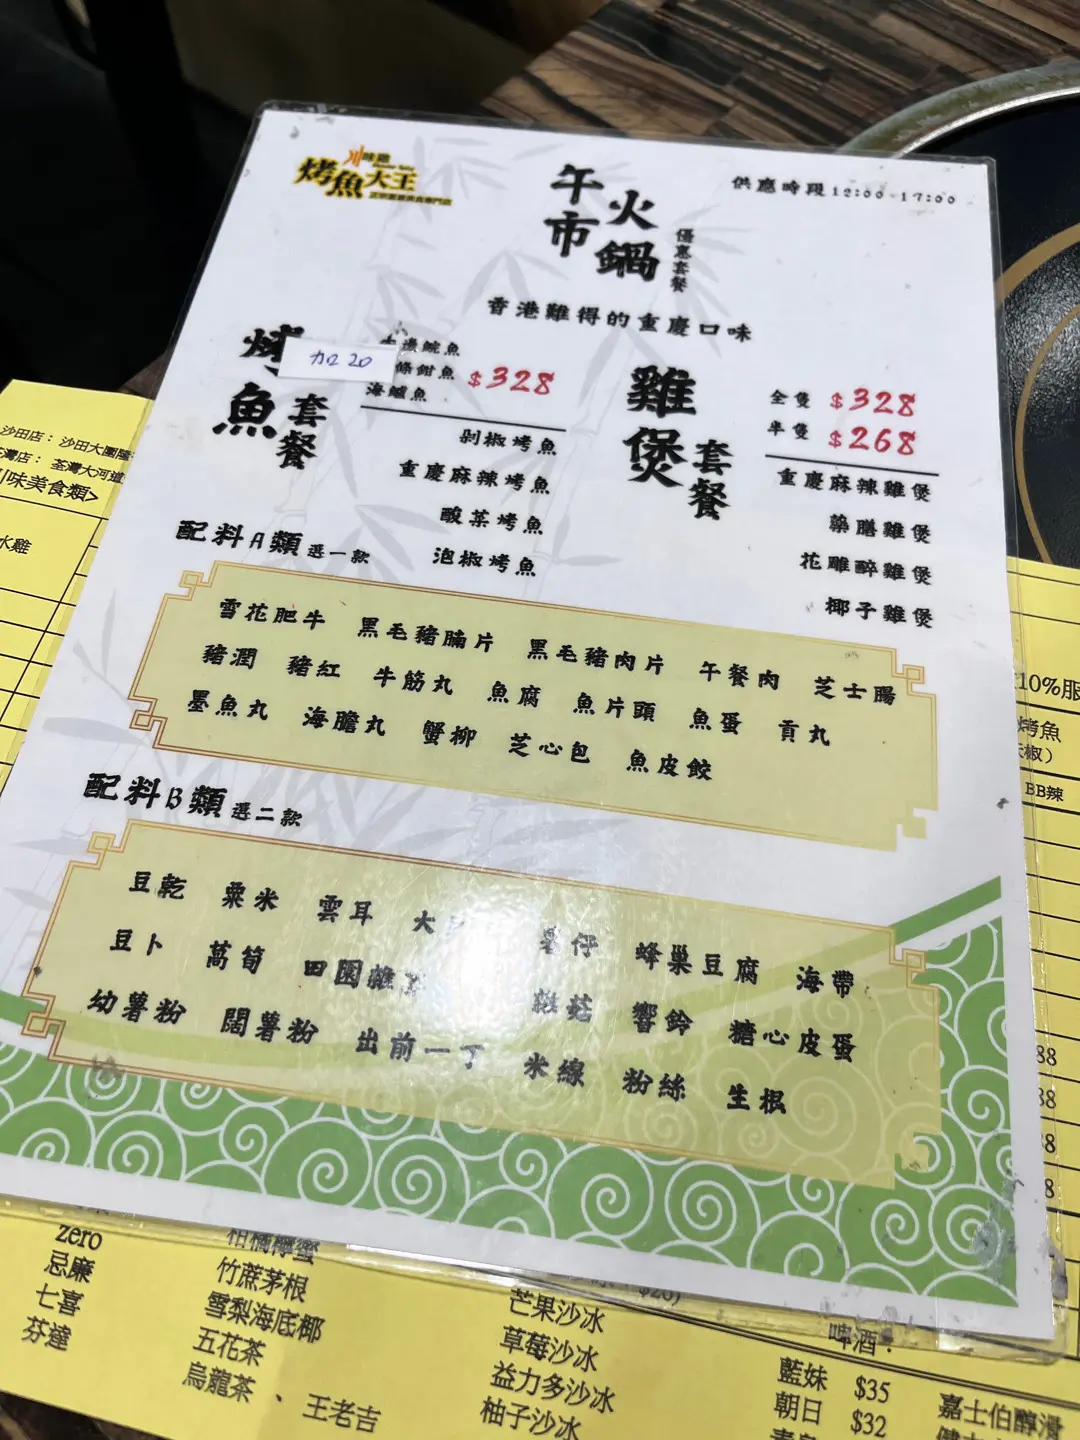 川味雞
烤魚大王
午市
火鍋
優惠套餐
供應時段12:00-17:00
香港難得的重慶口味
烤魚
套餐
加20
鯇魚
海鱸魚
$328
剁椒烤魚
重慶麻辣烤魚
酸菜烤魚
泡椒烤魚
雞煲
套餐
全隻 $328
半隻 $268
重慶麻辣雞煲
藥膳雞煲
花雕醉雞煲
椰子雞煲
配料A類 選一款
雪花肥牛 黑毛豬腩片 黑毛豬肉片 午餐肉 芝士腸
豬潤 豬紅 牛筋丸 魚腐 魚片頭 魚蛋 貢丸
墨魚丸 海膽丸 蟹柳 芝心包 魚皮餃
配料B類 選二款
豆乾 粟米 雲耳 大 薯仔 蜂巢豆腐 海帶
豆卜 萵筍 田園雜 菇 響鈴 糖心皮蛋
幼薯粉 闊薯粉 出前一丁 米線 粉絲 生根
沙田店：沙田大圍隆
荃灣店：荃灣大河道
川味美食類>
水雞
10%服
烤魚
椒）
BB辣
88
88
8
8
zero
忌廉
七喜
芬達
竹蔗茅根
雪梨海底椰
五花茶
烏龍茶、王老吉
$20)
芒果沙冰
草莓沙冰
益力多沙冰
柚子沙冰
啤酒：
藍妹 $35
朝日 $32
嘉士伯醇滑